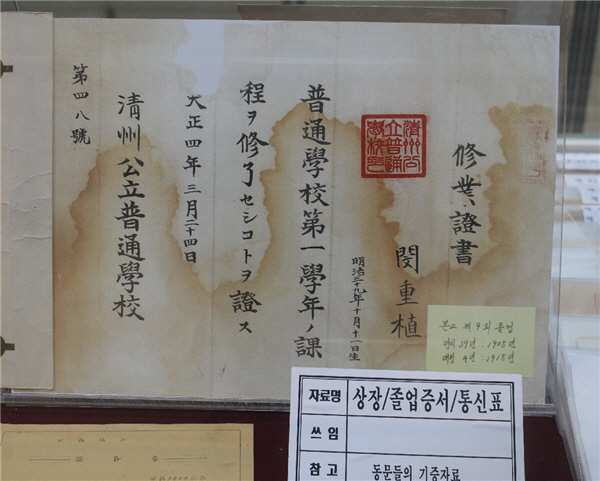 修業證書
閔重植
明治三十九年十月十一日生
清州公
立普通
學校印
普通學校第一學年ノ課
程ヲ修了セシコトヲ證ス
大正四年三月二十四日
清州公立普通學校
第四八號
본교 제9회 졸업
명치 39년 : 1905년
대정 4년 : 1915년
자료명 상장/졸업증서/통신표
쓰임
참고 동문들의 기증자료